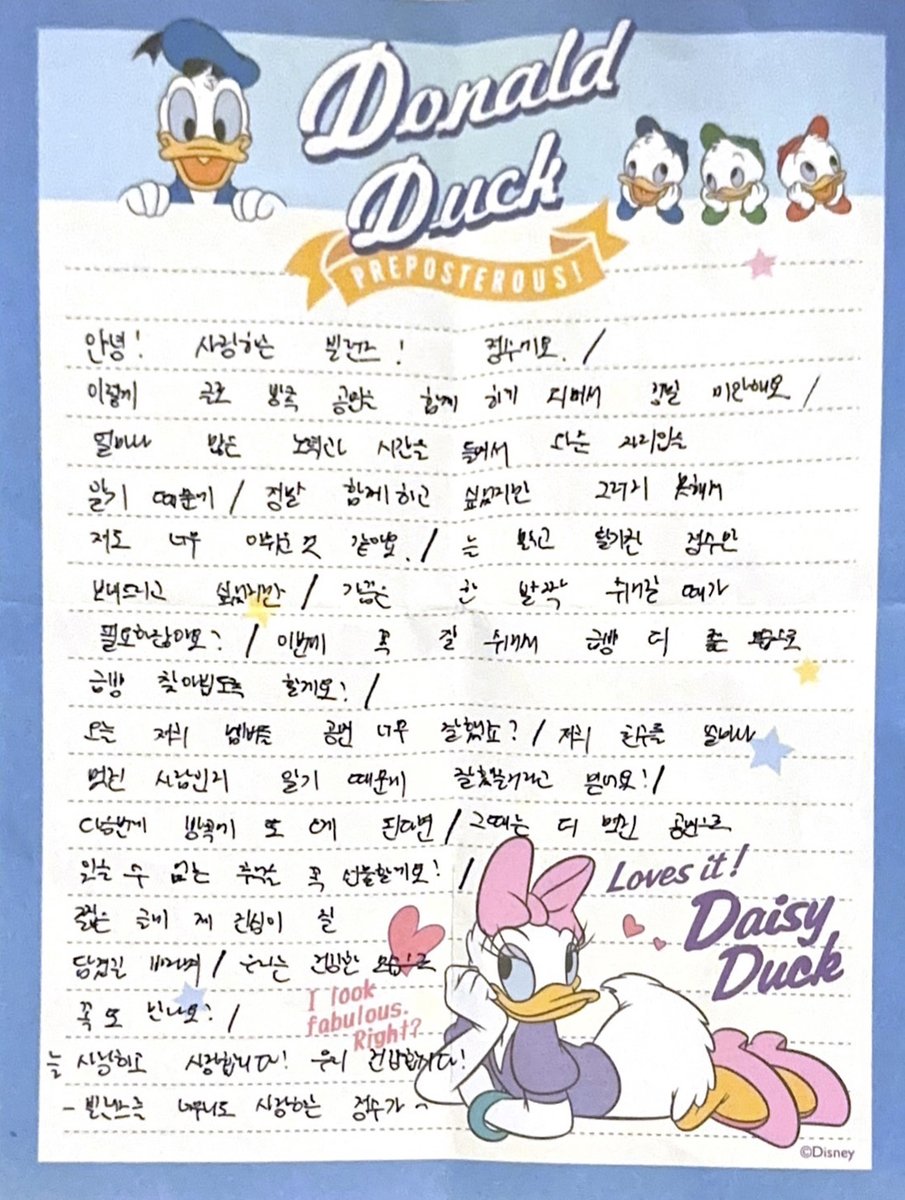 Donald
Duck
PREPOSTEROUS!
안녕! 사랑하는 빌런즈! 정수에요. /
이렇게 급로 방콕 공연을 함께 하기 되어서 정말 미안해요 /
얼마나 많은 노력과 시간을 들여서 오는 자리임을
알기 때문에 / 정말 함께하고 싶었지만 그러지 못해서
저도 너무 아쉬운 것 같아요. / 늘 밝고 활기찬 정수만
보내드리고 싶었지만 / 가끔은 한 발짝 쉬어갈 때가
필요하잖아요? / 이번에 꼭 잘 쉬어서 금방 더 좋은 모습으로
금방 찾아뵙도록 할게요! /
오늘 저희 멤버들 공연 너무 잘했죠? / 저희 친구들 얼마나
멋진 사람인지 알기 때문에 잘했을거라고 믿어요! /
다음번에 방콕에 또 오게 된다면 / 그때는 더 멋진 공연으로
잊을 수 없는 추억을 꼭 선물할게요! /
짧은 글에 제 진심이 잘
담겼길 바라며 / 우리는 건강한 모습으로
꼭 또 만나요! /
늘 사랑하고 사랑합니다! 우리 건강합시다!
- 빌런즈를 너무너무 사랑하는 정수가 -
Loves it!
Daisy
Duck
I look
fabulous.
Right?
©Disney